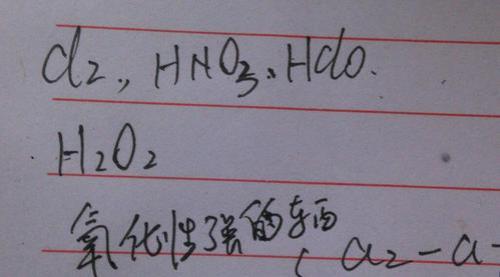 Cl2、HNO3、HClO.
H2O2
氧化性强的东西
( Cl2 - Cl-